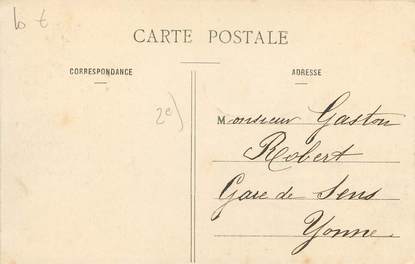 CARTE POSTALE
CORRESPONDANCE
ADRESSE
2e)
Monsieur Gaston
Robert
Gare de Sens
Yonne.